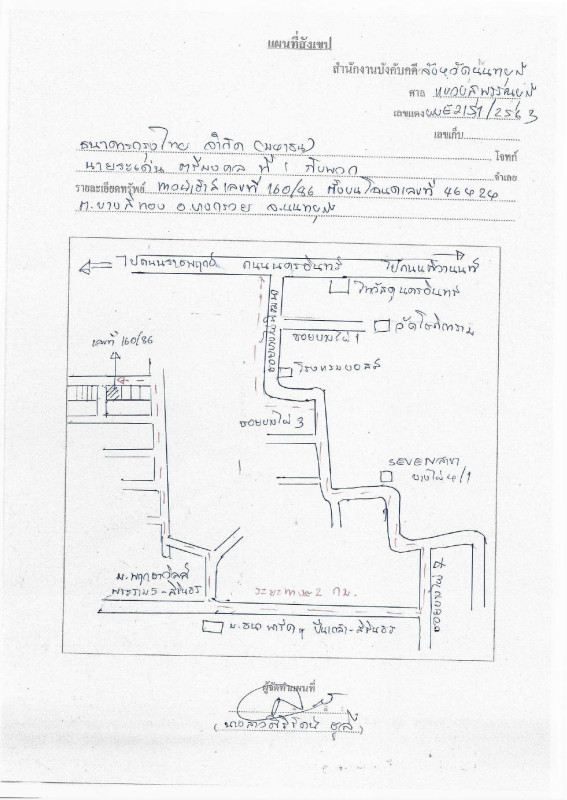 แผนที่สังเขป
สำนักงานบังคับคดี จังหวัดนนทบุรี
ศาล
เลขแดง ผบE2151/2563
เลขเก็บ
ธนาคารกรุงไทย จำกัด (มหาชน) โจทก์
นายระเด่น ตรีมงคล ที่ 1 กับพวก จำเลย
รายละเอียดทรัพย์ ทาวน์เฮ้าส์ เลขที่ 160/86 ตั้งบนโฉนดเลขที่ 46424
ต.บางสีทอง อ.บางกรวย จ.นนทบุรี
ไปถนนราชพฤกษ์ ถนนนครอินทร์ ไปถนนติวานนท์
ไทวัสดุนครอินทร์
เลขที่ 160/86
ซอยบางไผ่ 1
วัดโชติการาม
โรงแรม
ซอยบางไผ่ 3
SEVEN สาขา
บางไผ่ 4/1
ม.พฤกษาวิลล์
พระราม5-สิรินธร
ระยะทาง 2 กม.
ม.ธนาพาร์ค ปิ่นเกล้า-สิรินธร
ผู้จัดทำแผนที่